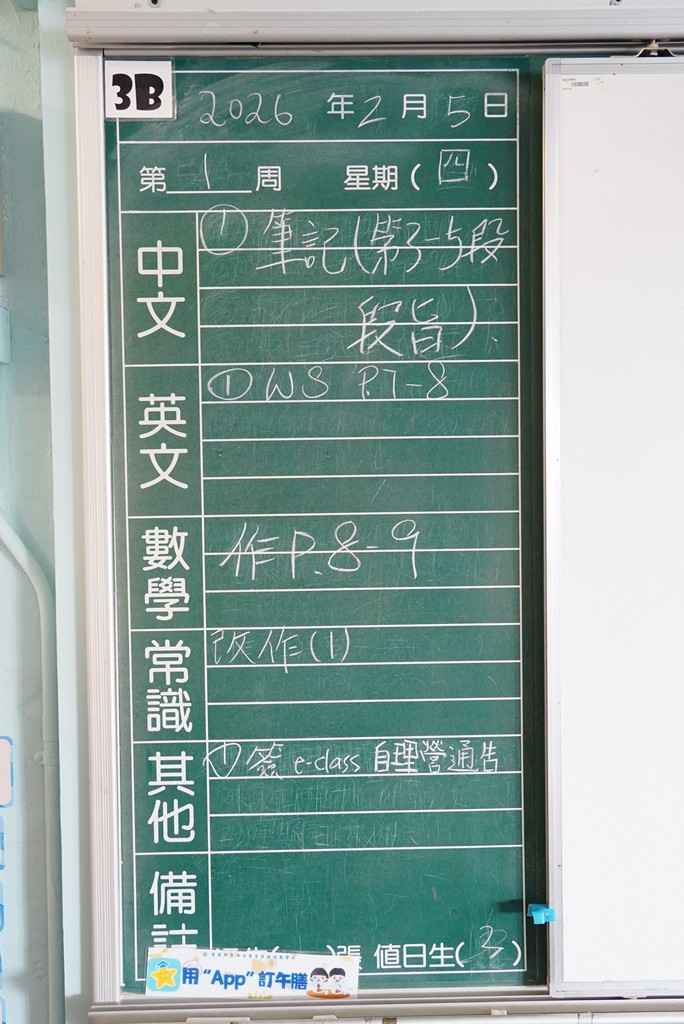 3B
2026年2月5日
第1周 星期(四)
中文
① 筆記(第3-5段
段旨)
英文
① WS P.7-8
數學
作P.8-9
常識
改作(1)
其他
① 簽 e-class 自理營通告
備註
張 值日生(3)
用“App”訂午膳